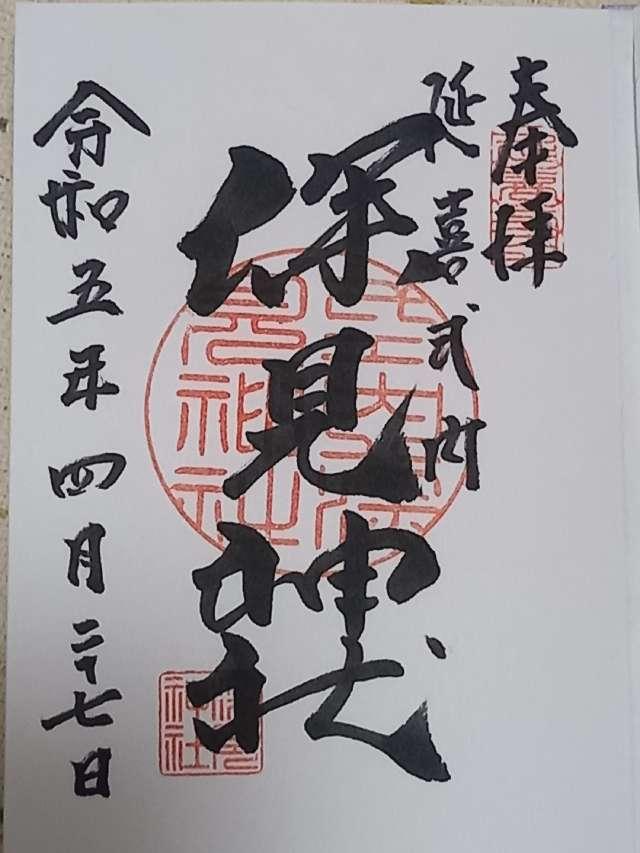 奉拝
延喜式内
保見神社
令和五年四月二十七日